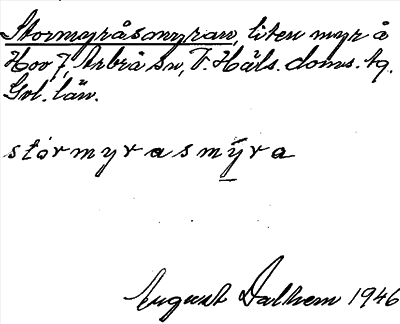 Stormyråsmyran, liten myr å
Hov 7, Arbrå sn, V. Häls. doms. tg.
Gvl. län.
stórmyrasmȳra
August Dalhem 1946